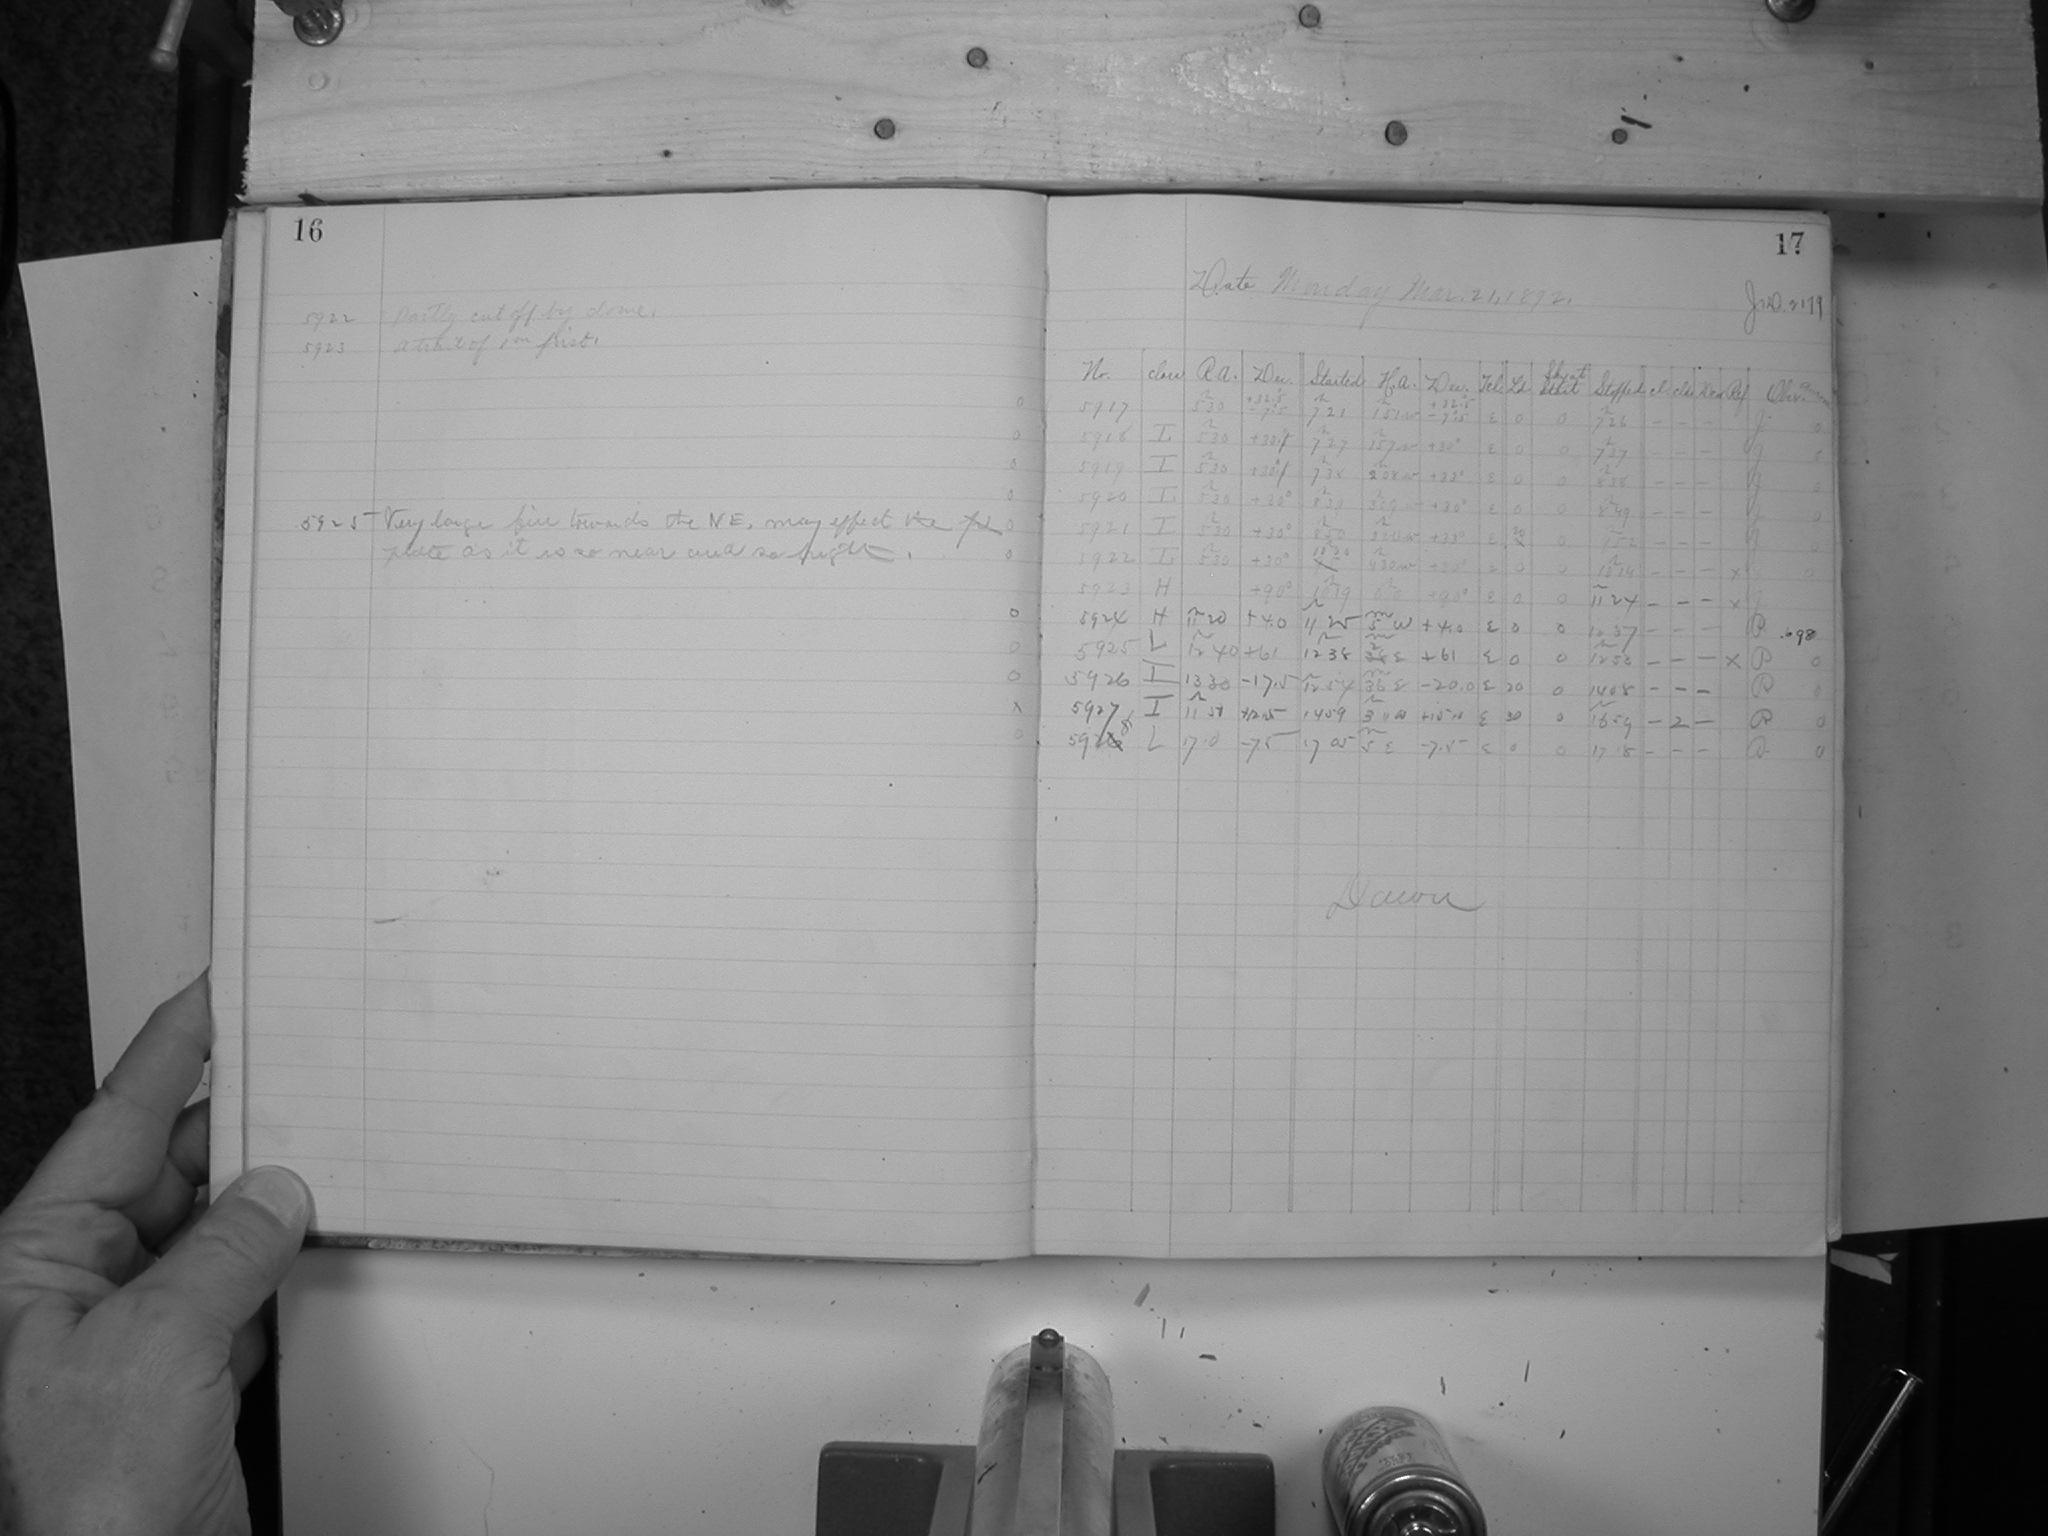 16
5922 Partly cut off by dome.
5923 first.
5925 Very large fire towards the NE, may effect the
plate as it is so near and so bright.
17
Date Monday Mar. 21, 1892.
J.D. 2179
No. class R.A. Dec. Started H.A. Dec. Tel. Started Stopped cl. clo. Ref Obs.
5917 530 +32.5 -7.5 721 151w +32.5 -7.5 ε 0 0 726 - - - J 0
5918 I 530 +30° 727 157w +30° ε 0 0 737 - - - J 0
5919 I 530 +30° 738 208w +33° ε 0 0 838 - - - J 0
5920 I 530 +30° 839 309 +30° ε 0 0 849 - - - J 0
5921 I 530 +30° 850 +33° ε 20 0 952 - - - J 0
5922 I 530 +30° 430w +30° ε 0 0 1014 - - - x 0
5923 H +90° 1019 +90° ε 0 0 1124 - - - x J
5924 H 11 20 +4.0 11 25 5 w +4.0 ε 0 0 - - - R .698
5925 L 12 40 +61 12 38 ε +61 ε 0 0 12 50 - - - x R 0
5926 I 13 30 -17.5 12 54 36 ε -20.0 ε 20 0 1408 - - - R 0
5927 I 11 51 +12.5 1459 ε 30 0 1659 - 2 - R 0
5928 L 17 0 -75 17 05 5 ε -7.5 ε 0 0 17 18 - - - R 0
Dawn